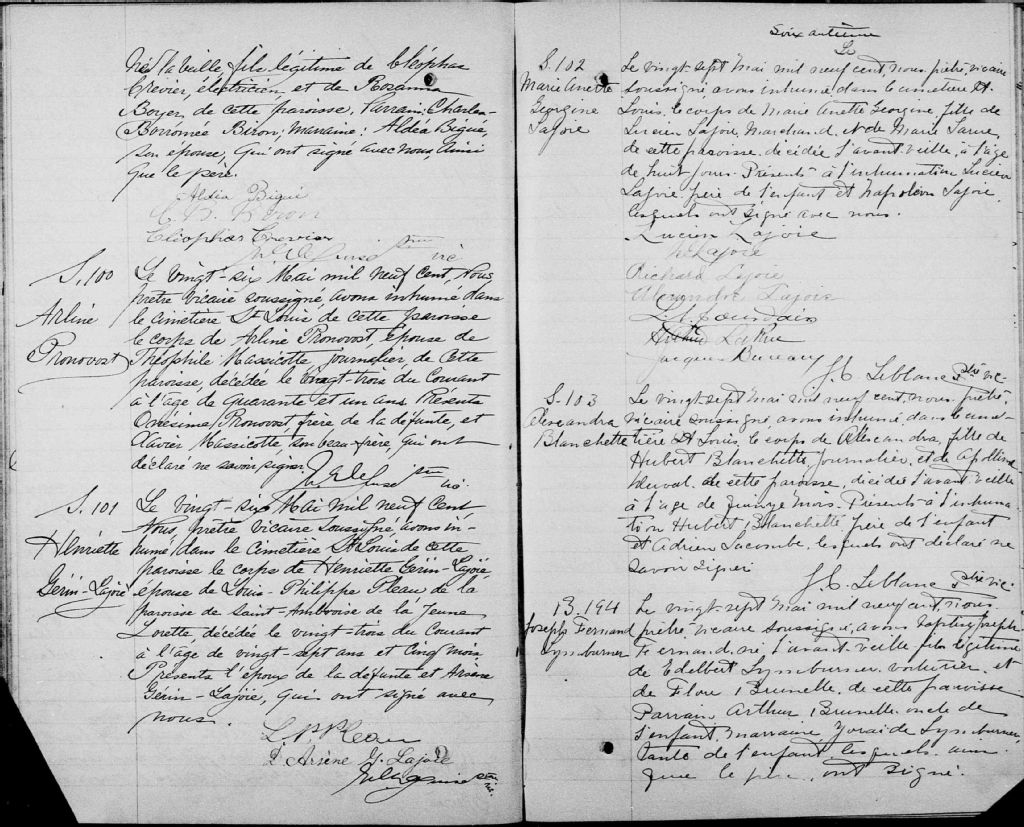 né la veille, fils légitime de Cléophas
Crevier, électricien, et de Rosanna
Boyer de cette paroisse, Parrain: Charles-
Borromée Biron, Marraine: Aldéa Bigué,
son épouse, qui ont signé avec nous, ainsi
que le père.
Aldéa Bigué
C. B. Biron
Cléophas Crevier
ptre
vic
S. 100
Arline
Pronovost
Le vingt-six Mai mil neuf cent, Nous
prêtre vicaire soussigné avons inhumé dans
le cimetière St Louis de cette paroisse
le corps de Arline Pronovost, épouse de
Théophile Massicotte, journalier, de cette
paroisse, décédée le vingt-trois du Courant
à l'âge de Quarante et un ans. Présents
Onésime Pronovost, frère de la défunte, et
Xavier Massicotte, son beau-frère, qui ont
déclaré ne savoir signer.
ptre
vic
S. 101
Henriette
Gérin-Lajoie
Le vingt-six Mai mil neuf cent
Nous, prêtre vicaire soussigné avons in-
humé dans le Cimetière St Louis de cette
paroisse le corps de Henriette Gérin-Lajoie
épouse de Louis-Philippe Pleau de la
paroisse de Saint-Ambroise de la Jeune
Lorette, décédée le vingt-trois du Courant
à l'âge de vingt-sept ans et Cinq mois
Présents l'époux de la défunte et Arsène
Gérin-Lajoie, qui ont signé avec
nous.
L P Pleau
Arsène G. Lajoie
ptre
vic.
Soixantième
Le
S. 102
Marie Anette
Georgine
Lajoie
Le vingt-sept Mai mil neuf cent, nous, prêtre, vicaire
soussigné, avons inhumé dans le cimetière St
Louis, le corps de Marie Anette Georgine, fille de
Lucien Lajoie, Marchand, et de Marie
de cette paroisse, décédée l'avant-veille, à l'âge
de huit jours. Présents à l'inhumation Lucien
Lajoie père de l'enfant et Napoléon Lajoie,
lesquels ont signé avec nous.
Lucien Lajoie
N. Lajoie
Richard Lajoie
Alexandre Lajoie
Arthur LaRue
Jacques Bureau
J. C. Leblanc Ptre vic.
S. 103
Alexandra
Blanchette
Le vingt-sept Mai mil neuf cent, nous, prêtre,
vicaire soussigné, avons inhumé, dans le cime-
tière St Louis, le corps de Alexandra, fille de
Hubert Blanchette, Journalier, et de
Duval, de cette paroisse, décédée l'avant-veille
à l'âge de quinze mois. Présents à l'inhuma-
tion Hubert Blanchette, père de l'enfant
et Adrien Lacombe, lesquels ont déclaré ne
savoir signer
J. C. Leblanc Ptre vic.
B. 194
Joseph Fernand
Lymburner
Le vingt-sept Mai mil neuf cent, nous
prêtre, vicaire soussigné, avons baptisé Joseph
Fernand, né l'avant-veille fils légitime
de Edelbert Lymburner, voiturier, et
de Flore Brunelle, de cette paroisse
Parrain Arthur Brunelle oncle de
l'enfant, marraine, Lymburner,
tante de l'enfant, lesquels, ainsi
que le père, ont signé.